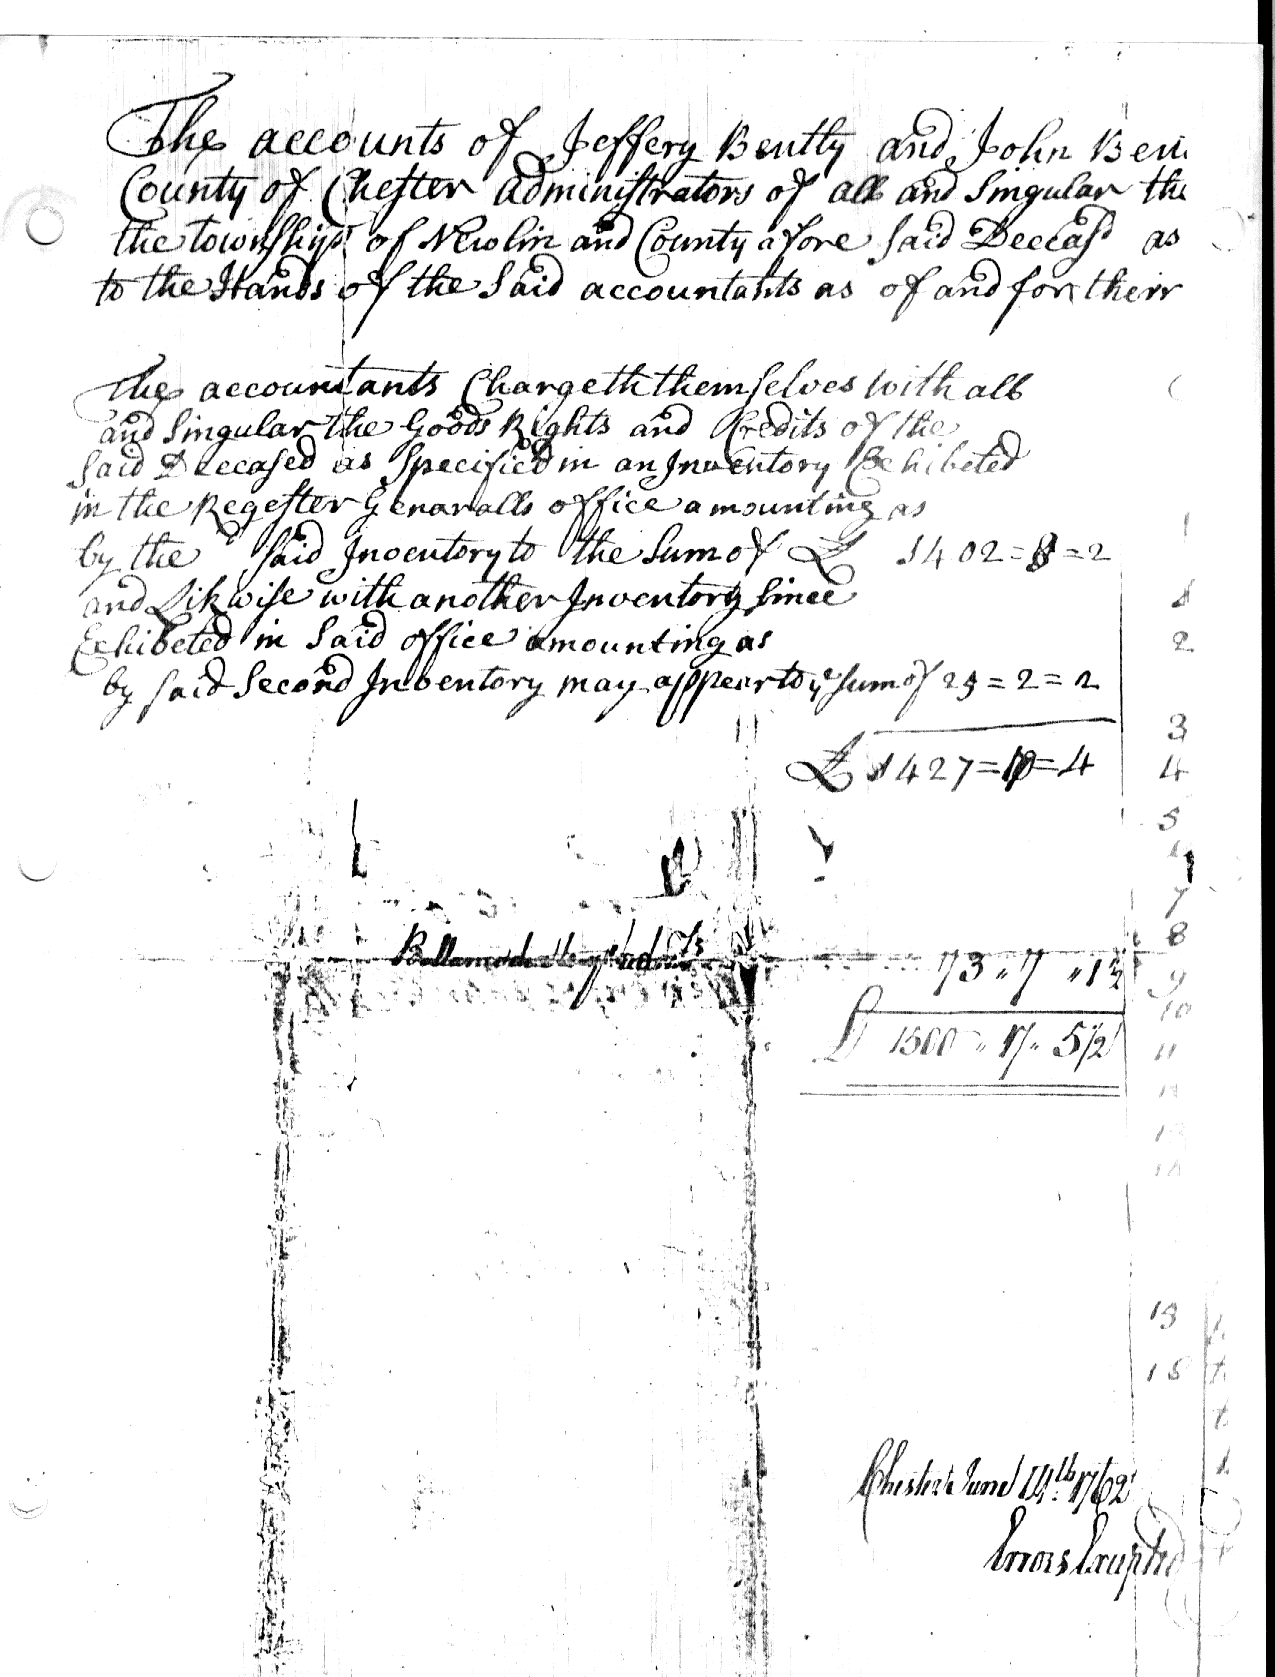 The accounts of Jeffery Bently and John Ben
County of Chester administrators of all and Singular the
the township of Newlin and County afore Said Deceasd as
to the Hands of the Said accountants as of and for their
The accountants Chargeth themselves with all
and Singular the Goods Rights and Credits of the
Said Deceased as Specified in an Inventory Exhibeted
in the Regester Generalls office amounting as
by the Said Inventory to the Sum of £ 1402=8=2
and Likwise with another Inventory Since
Exhibeted in Said office amounting as
by said Second Inventory may appear to ye Sum of 25=2=2
£ 1427=10=4
Ballance
73 " 7 " 1½
£ 1500 " 17 " 5½
1
2
3
4
5
7
8
9
10
11
13
15
Chester June 14th 1762
Errors Excepted